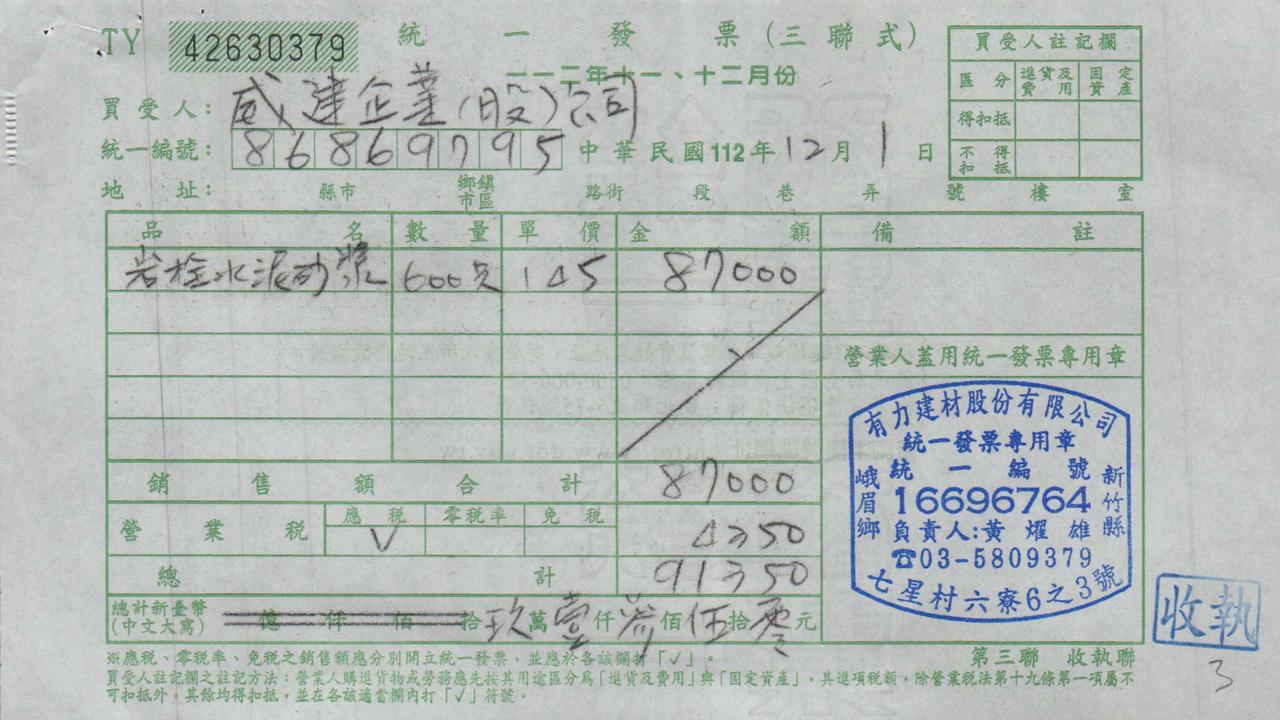 TY 42630379 統一發票(三聯式)
一一二年十一、十二月份
買受人: 威建企業(股)公司
統一編號: 86869795 中華民國112年12月1日
地址: 縣市 鄉鎮市區 路街 段 巷 弄 號 樓 室
買受人註記欄
區分 進貨及費用 固定資產
得扣抵
不得扣抵
品名 數量 單價 金額 備註
岩栓水泥砂漿 600只 145 87000
營業人蓋用統一發票專用章
銷售額合計 87000
營業稅 應稅 零稅率 免稅
V 4350
總計 91350
總計新臺幣(中文大寫) 億仟佰拾玖萬壹仟參佰伍拾零元
有力建材股份有限公司
統一發票專用章
統一編號
16696764
負責人:黃燿雄
☎03-5809379
新竹縣
峨眉鄉
七星村六寮6之3號
※應稅、零稅率、免稅之銷售額應分別開立統一發票,並應於各該欄打「✓」。
第三聯 收執聯
買受人註記欄之註記方法:營業人購進貨物或勞務應先按其用途區分為「進貨及費用」與「固定資產」,其進項稅額,除營業稅法第十九條第一項屬不
可扣抵外,其餘均得扣抵,並在各該適當欄內打「✓」符號。
收執
3